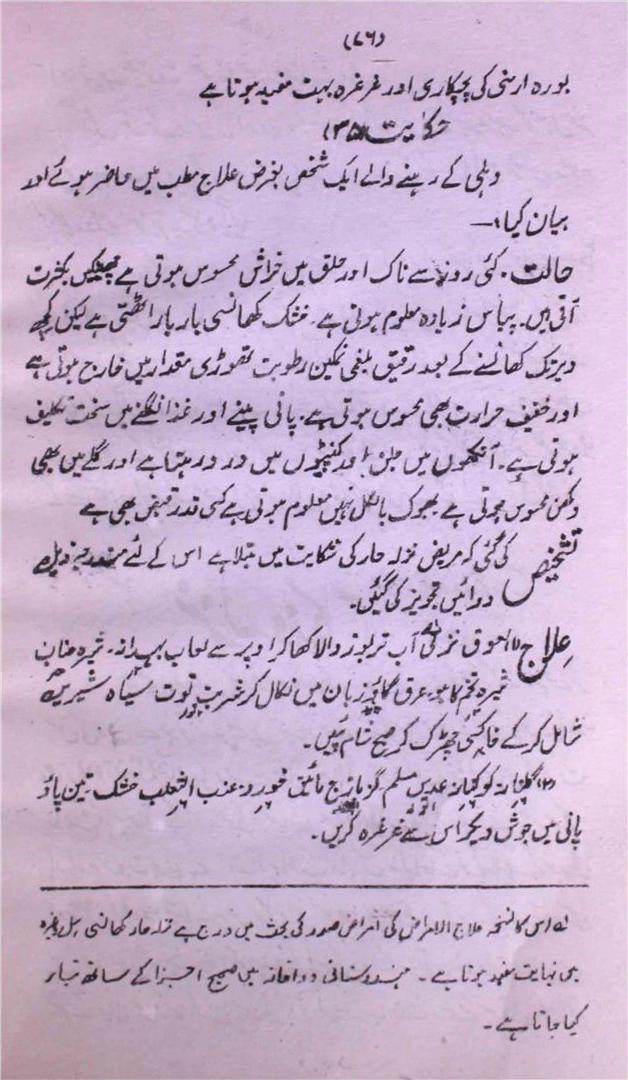 (۷۶)
بورہ ارمنی کی پچپکاری اور غرغرہ بہت مفید ہوتا ہے
حکایت (۳۵)
دہلی کے رہنے والے ایک شخص بغرض علاج مطب میں حاضر ہوئے اور
بیان کیا۔
حالت۔ کئی روز سے ناک اور حلق میں خراش محسوس ہوتی ہے چھینکیں بکثرت
آتی ہیں۔ پیاس زیادہ معلوم ہوتی ہے۔ خشک کھانسی بار بار اٹھتی ہے لیکن کچھ
دیر تک کھانسنے کے بعد رقیق بلغمی نمکین رطوبت تھوڑی مقدار میں خارج ہوتی ہے
اور خفیف حرارت بھی محسوس ہوتی ہے۔ پانی پینے اور غذا نگلنے میں سخت تکلیف
ہوتی ہے۔ آنکھوں میں جلن اور کنپٹیوں میں درد رہتا ہے اور گلے میں بھی
دکھن محسوس ہوتی ہے بھوک بالکل نہیں معلوم ہوتی ہے کسی قدر قبض بھی ہے
تشخیص کی گئی کہ مریض نزلہ حار کی شکایت میں مبتلا ہے اس کے لئے مندرجہ ذیل
دوائیں تجویز کی گئیں۔
علاج (۱) لعوق نزلی آب تربوز والا کھا کر اوپر سے لعاب بہدانہ۔ شیرہ عناب
شیرہ تخم کاہو عرق گاؤزبان میں نکال کر شربت توت سیاہ شیریں
شامل کر کے خاکسی چھڑک کر صبح شام پئیں۔
(۲) گلنار کوکنار عدس مسلم گزمازج عنب الثعلب خشک تین پاؤ
پانی میں جوش دیکر اس سے غرغرہ کریں۔
لہ اس کا نسخہ علاج الامراض کی امراض صدر کی بحث میں درج ہے نزلہ حار کھانسی سل وغیرہ
میں نہایت مفید ہوتا ہے۔ ہندوستانی دواخانہ میں صحیح اجزا کے ساتھ تیار
کیا جاتا ہے۔